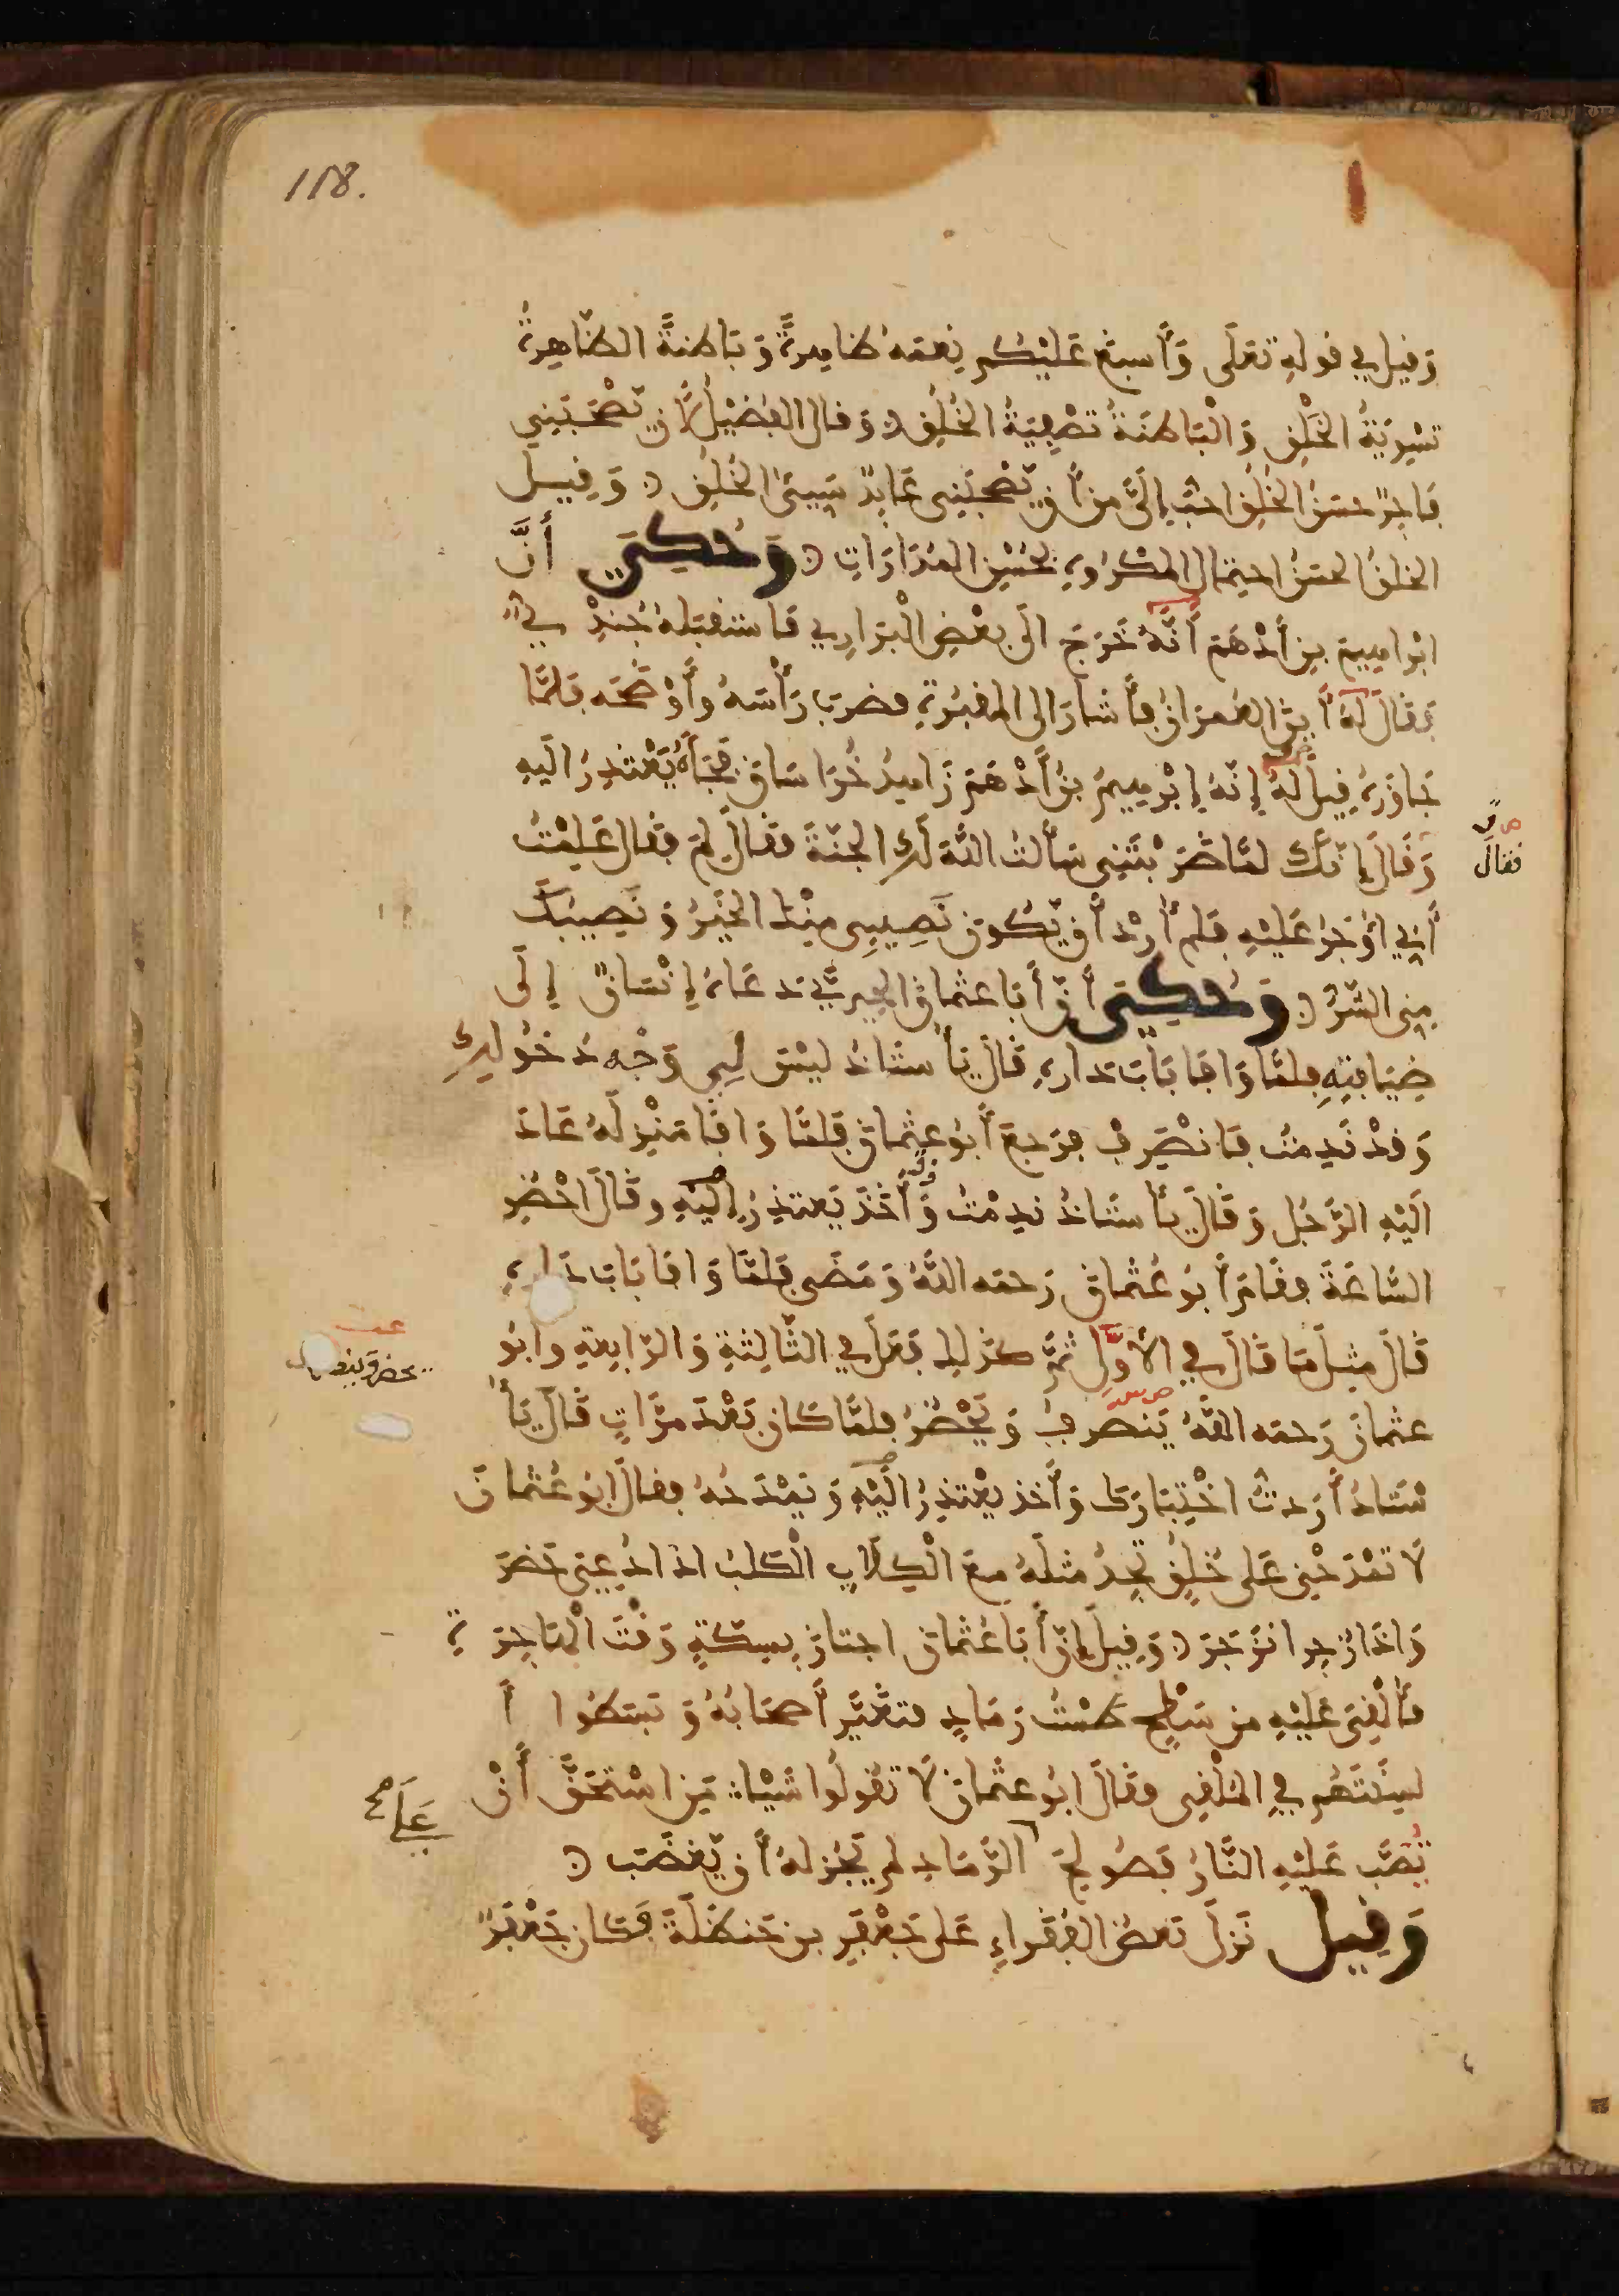 118.
وَقيل في قوله تعلَى وَأسبغ عَليْكم نِعمه ظاهِرةً وَبَاطنةً الظاهِرةُ
تسْوِيَةُ الخَلْقِ وَالْبَاطنَةُ تَصْفِيَةُ الخُلُقِ وَقال الفضيْل لأن يّصْحبَنِي
فاجرٌ حسَنُ الخُلُقِ احَبّ إلَيَّ من أن يّصْحبَنِي عَابِدٌ سَيِّئُ الخُلُقِ وَقِيل
الخلقُ الحسَنُ احتِمَال المكْرُوهِ بحُسْنِ المدَارَاتِ وَحُكيَ أنَّ
ابْراهِيمَ بن أدْهَمَ أنّهُ خَرَجَ الَى بعْضِ الْبَرَارِي فاستقبَلهُ جُنْدِيٌّ
فَقَالَ لهُ أيْنَ العُمرَانُ فأشارَ الى المقبُرَةِ فضربَ رَأْسَهُ وأوْضحَه فلمَّا
جَاوَزَهُ قِيل لهُ إنّهُ إبْرهِيمُ بنُ أدْهَمَ زَاهِدُ خُرَاسَانَ فجَاءَهُ يَعْتذِرُ الَيهِ
وَقَالَ إنّكَ لمَّا ضَرَبْتَنِي سَألتُ اللهَ لَك الجنّةَ فقالَ لِمَ فقال عَلِمْتُ
فقالَ
أنِّي اوْجَرُ عَلَيْهِ فلم أرِدْ أن يّكونَ نَصِيبِي مِنْكَ الخيْرُ وَنَصِيبُكَ
مِنِّي الشّرُّ وَحُكِيَ أنّ أبَا عثمانَ الحِيرِيَّ دَعَاهُ إنْسَانٌ إلَى
ضِيَافتِهِ فلمَّا وَافَا بَابَ دَارِهِ قَالَ يَأسْتَاذُ ليْسَ لِي وَجْه دُخُولِك
وَقدْ نَدِمتُ فَانْصَرِفْ فرَجعَ أبُو عثمان فلمَّا وَافَا مَنْزِلَهُ عَادَ
الَيْهِ الرَّجُل وَقَالَ يَأسْتَاذُ نَدِمْتُ وَأخَذَ يَعتذِرُ إلَيْهِ وقَالَ احْضُرِ
السَّاعَةَ فقَامَ أبُو عُثمان رَحمَه اللهُ وَمَضَى فلمَّا وَافا بَابَ دَارِهِ
قَالَ مثلَ مَا قَالَ في الأوَّلِ ثمَّ كذلِك فَعَلَ في الثَّالِثةِ وَالرّابِعةِ وابُو
عثمانَ رَحمَه اللهُ يَنصرِفُ وَيَحْضُرُ فلمَّا كَانَ بَعْدَ مرَّاتٍ قَالَ يَأ
سْتَاذُ أرَدتُ اخْتِبَارَكَ وَأخذ يعْتذِرُ الَيْهِ وَيَمْدَحُهُ فقالَ ابُو عُثمانَ
لَا تَمْدَحْنِي عَلى خُلُقٍ تجِدُ مثلَهُ مَعَ الْكِلَابِ الْكَلبُ اذا دُعِيَ حَضَرَ
وَاذَا زُجِرَ انْزَجَرَ وَقِيلَ إنّ أبَا عُثمانَ اجتازَ بِسِكّةٍ وَقْتَ الهَاجِرَةِ
فألْقِيَ عَلَيْهِ من سَطْحٍ طسْتُ رَمَادٍ فتغَيَّرَ أصحَابُهُ وَبَسَطُوا أ
لسِنَتَهُم في المُلْقِي فقالَ ابُو عثمانَ لَا تقُولُوا شَيْئاً مَنِ اسْتحَقَّ أنْ
يُّصَبَّ عَليْهِ النَّارُ فصُولِحَ الرَّمَادِ لم يَجُزْ لهُ أن يّغضَبَ
عَلَى
وَقِيلَ نَزلَ بَعضُ الفقَراءِ عَلى جَعْفَرِ بن حَنظَلَةَ فَكَان جَعْفَرٌ